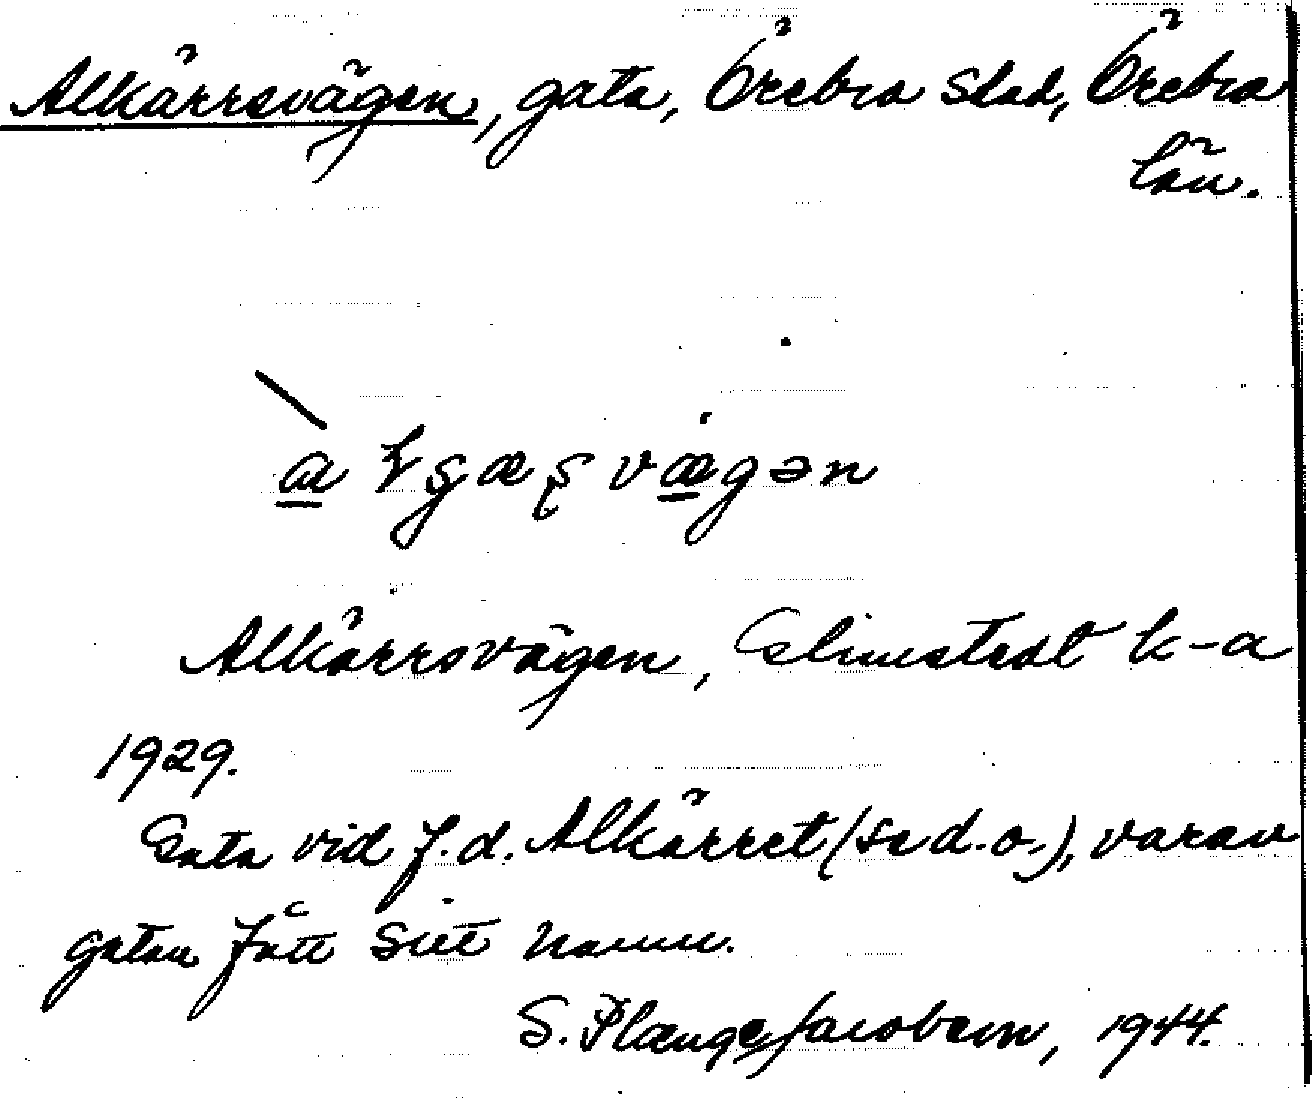 Alkärrsvägen, gata, Örebro stad, Örebro
län.
Alkärrsvägen, Elmstedt k-a
1929.
Gata vid f.d. Alkärret (se d.o.), varav
gatan fått sitt namn.
S. Plænge Jacobson, 1944.